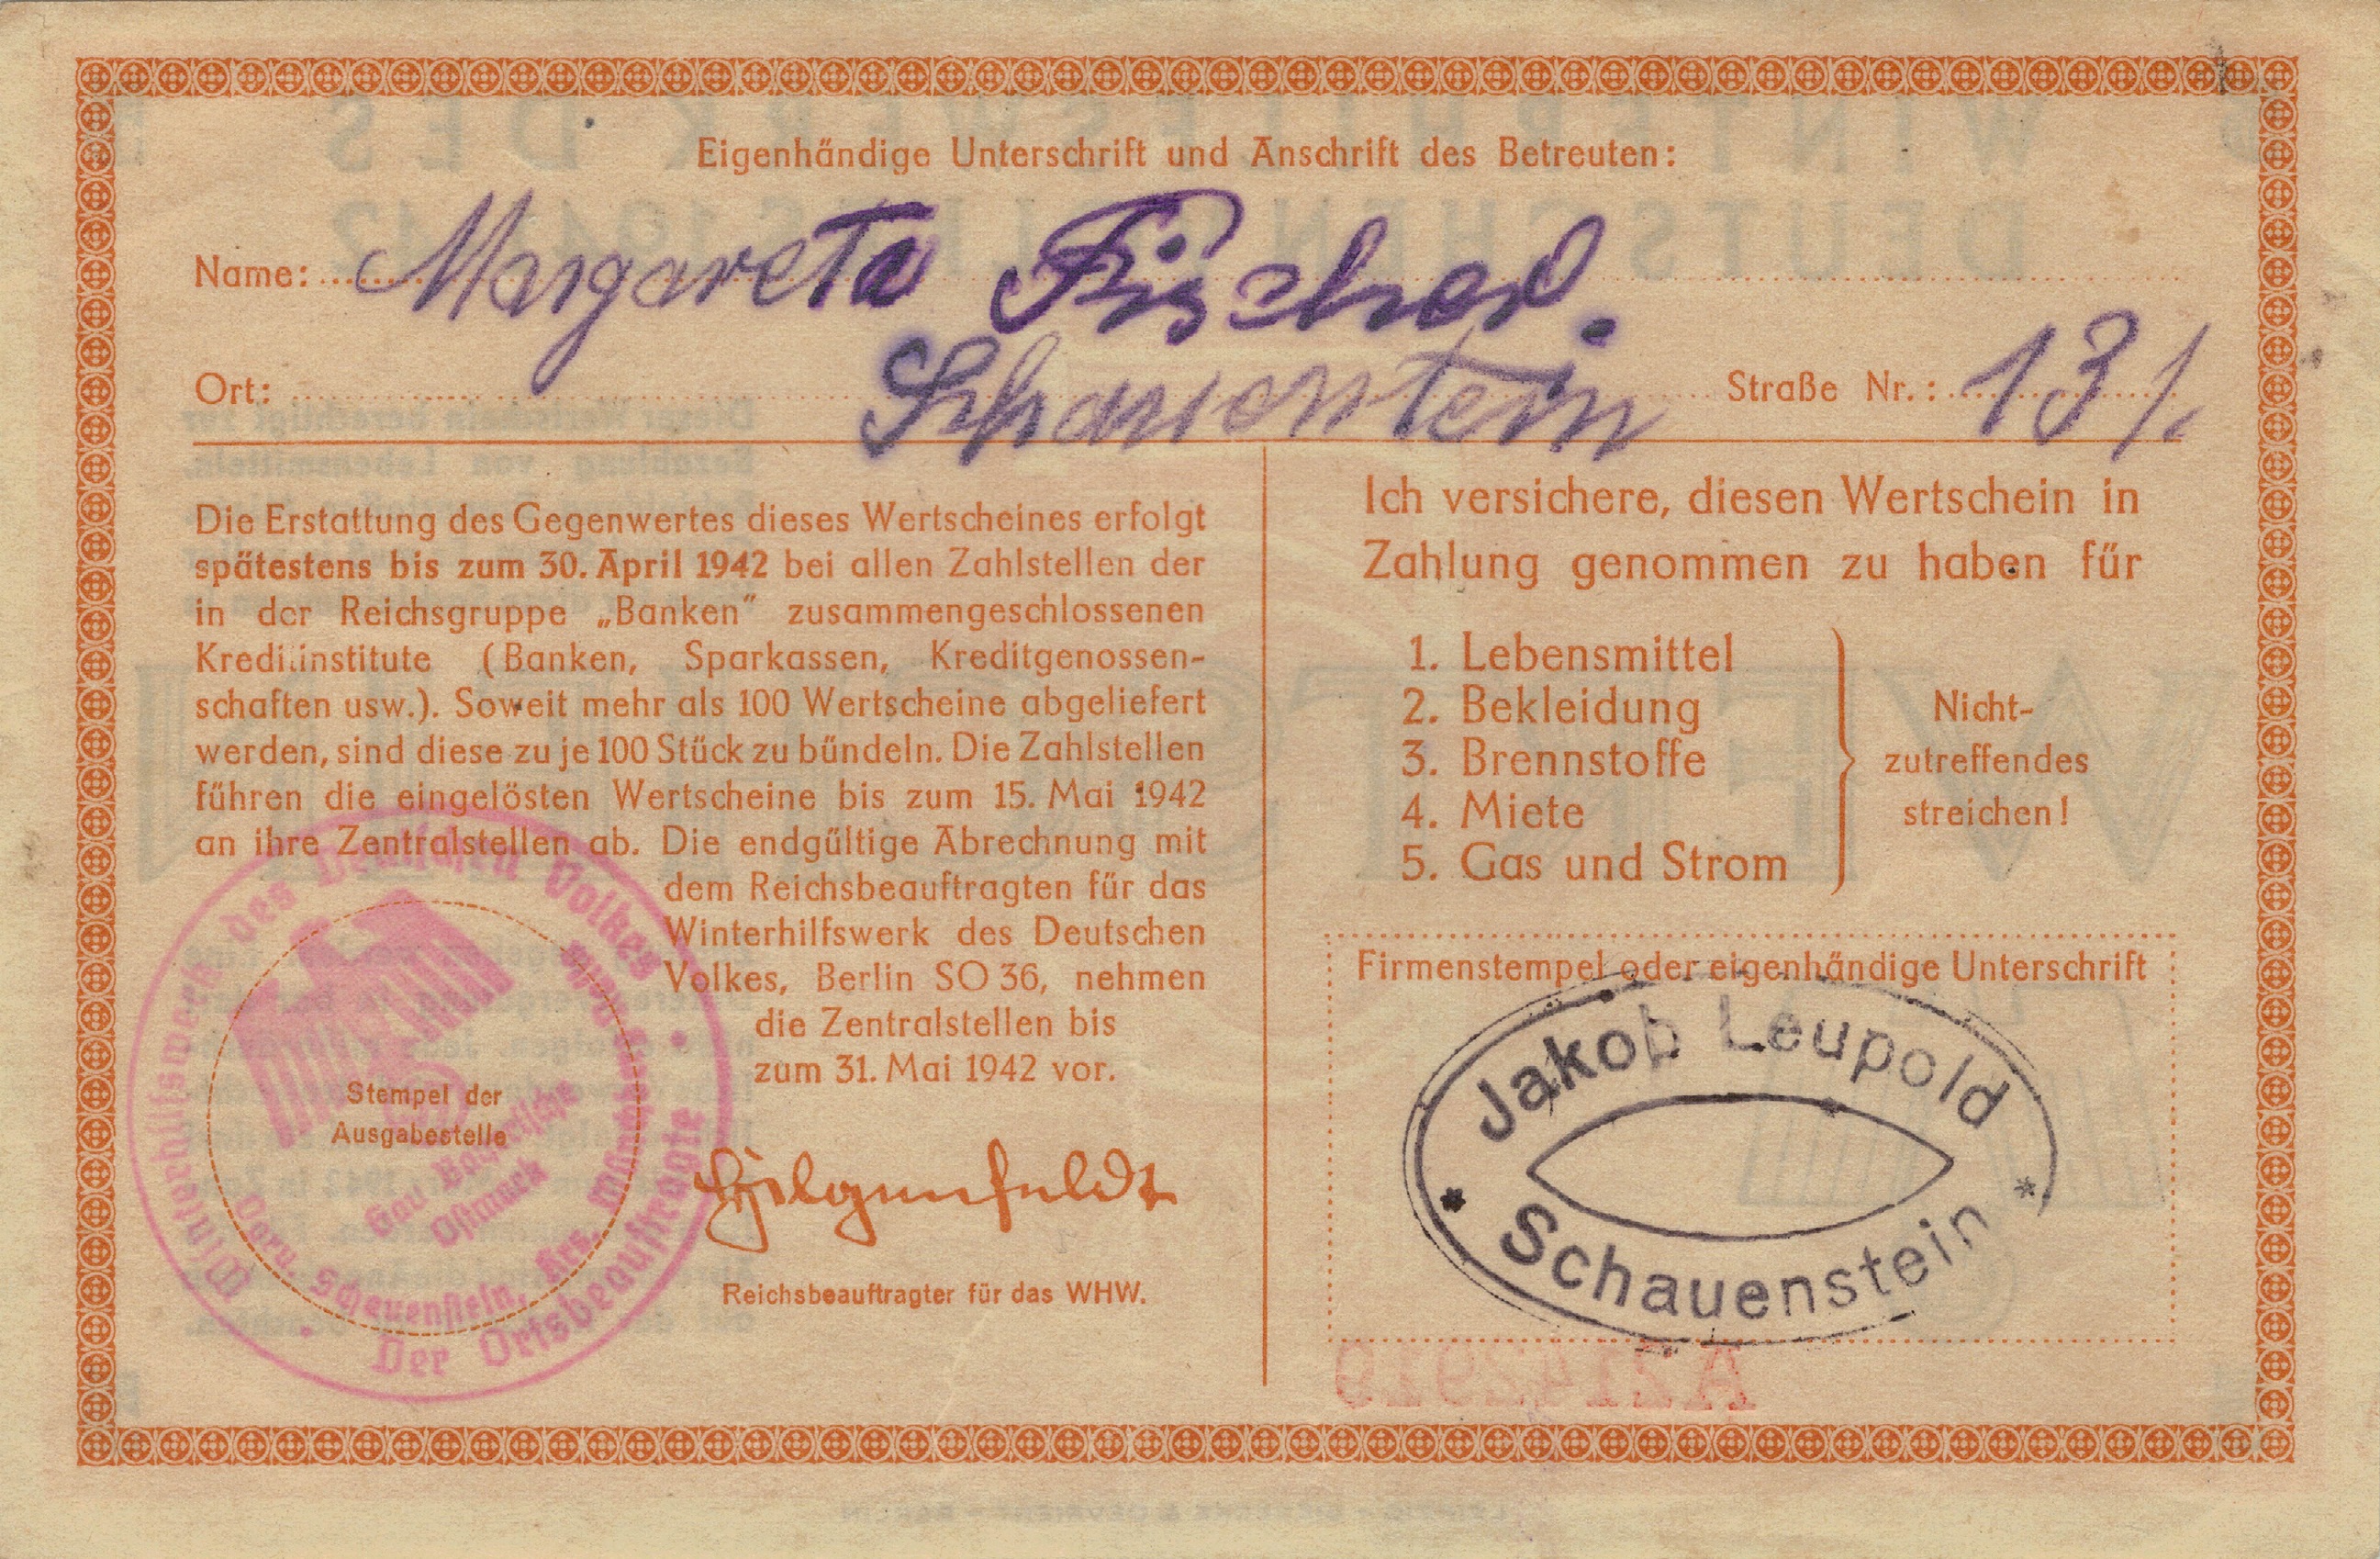 Eigenhändige Unterschrift und Anschrift des Betreuten:
Name: Margareta Fischer.
Ort: Schauenstein Straße Nr.: 131.
Die Erstattung des Gegenwertes dieses Wertscheines erfolgt
spätestens bis zum 30. April 1942 bei allen Zahlstellen der
in der Reichsgruppe „Banken“ zusammengeschlossenen
Kreditinstitute (Banken, Sparkassen, Kreditgenossen-
schaften usw.). Soweit mehr als 100 Wertscheine abgeliefert
werden, sind diese zu je 100 Stück zu bündeln. Die Zahlstellen
führen die eingelösten Wertscheine bis zum 15. Mai 1942
an ihre Zentralstellen ab. Die endgültige Abrechnung mit
dem Reichsbeauftragten für das
Winterhilfswerk des Deutschen
Volkes, Berlin SO 36, nehmen
die Zentralstellen bis
zum 31. Mai 1942 vor.
Hilgenfeldt
Reichsbeauftragter für das WHW.
Stempel der
Ausgabestelle
Winterhilfswerk des Deutschen Volkes
Der Ortsbeauftragte
Schauenstein, Krs. Münchberg
Gau Bayerische
Ostmark
Ich versichere, diesen Wertschein in
Zahlung genommen zu haben für
1. Lebensmittel
2. Bekleidung
3. Brennstoffe
4. Miete
5. Gas und Strom
Nicht-
zutreffendes
streichen!
Firmenstempel oder eigenhändige Unterschrift
Jakob Leupold
* Schauenstein *